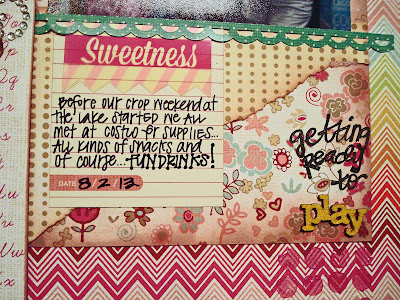 Sweetness
Before our crop weekend at
the lake started we all
met at Costco for supplies...
All kinds of snacks and
of course... FUNDRINKS!
DATE 8/2/12
getting
ready
to
play